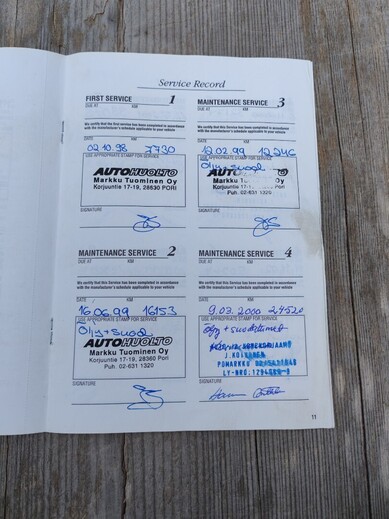 Service Record
FIRST SERVICE 1
DUE AT KM
We certify that the first service has been completed in accordance
with the manufacturer's schedule applicable to your vehicle
DATE KM
02.10.98 7730
USE APPROPRIATE STAMP FOR SERVICE
AUTOHUOLTO
Markku Tuominen Oy
Korjuuntie 17-19, 28630 PORI
SIGNATURE
MAINTENANCE SERVICE 2
DUE AT KM
We certify that this Service has been completed in accordance
with the manufacturer's schedule applicable to your vehicle
DATE KM
16.06.99 16153
USE APPROPRIATE STAMP FOR SERVICE
Öljy+suod
AUTOHUOLTO
Markku Tuominen Oy
Korjuuntie 17-19, 28360 Pori
Puh. 02-631 1320
SIGNATURE
MAINTENANCE SERVICE 3
DUE AT KM
We certify that this Service has been completed in accordance
with the manufacturer's schedule applicable to your vehicle
DATE KM
12.02.99 12246
USE APPROPRIATE STAMP FOR SERVICE
Öljy+suod
Markku T
Korjuuntie 17-19,
Puh. 02-631 1320
SIGNATURE
MAINTENANCE SERVICE 4
DUE AT KM
We certify that this Service has been completed in accordance
with the manufacturer's schedule applicable to your vehicle
DATE KM
9.03.2000 24520
USE APPROPRIATE STAMP FOR SERVICE
öljy + suodattimet
POMARKKU
SIGNATURE
11